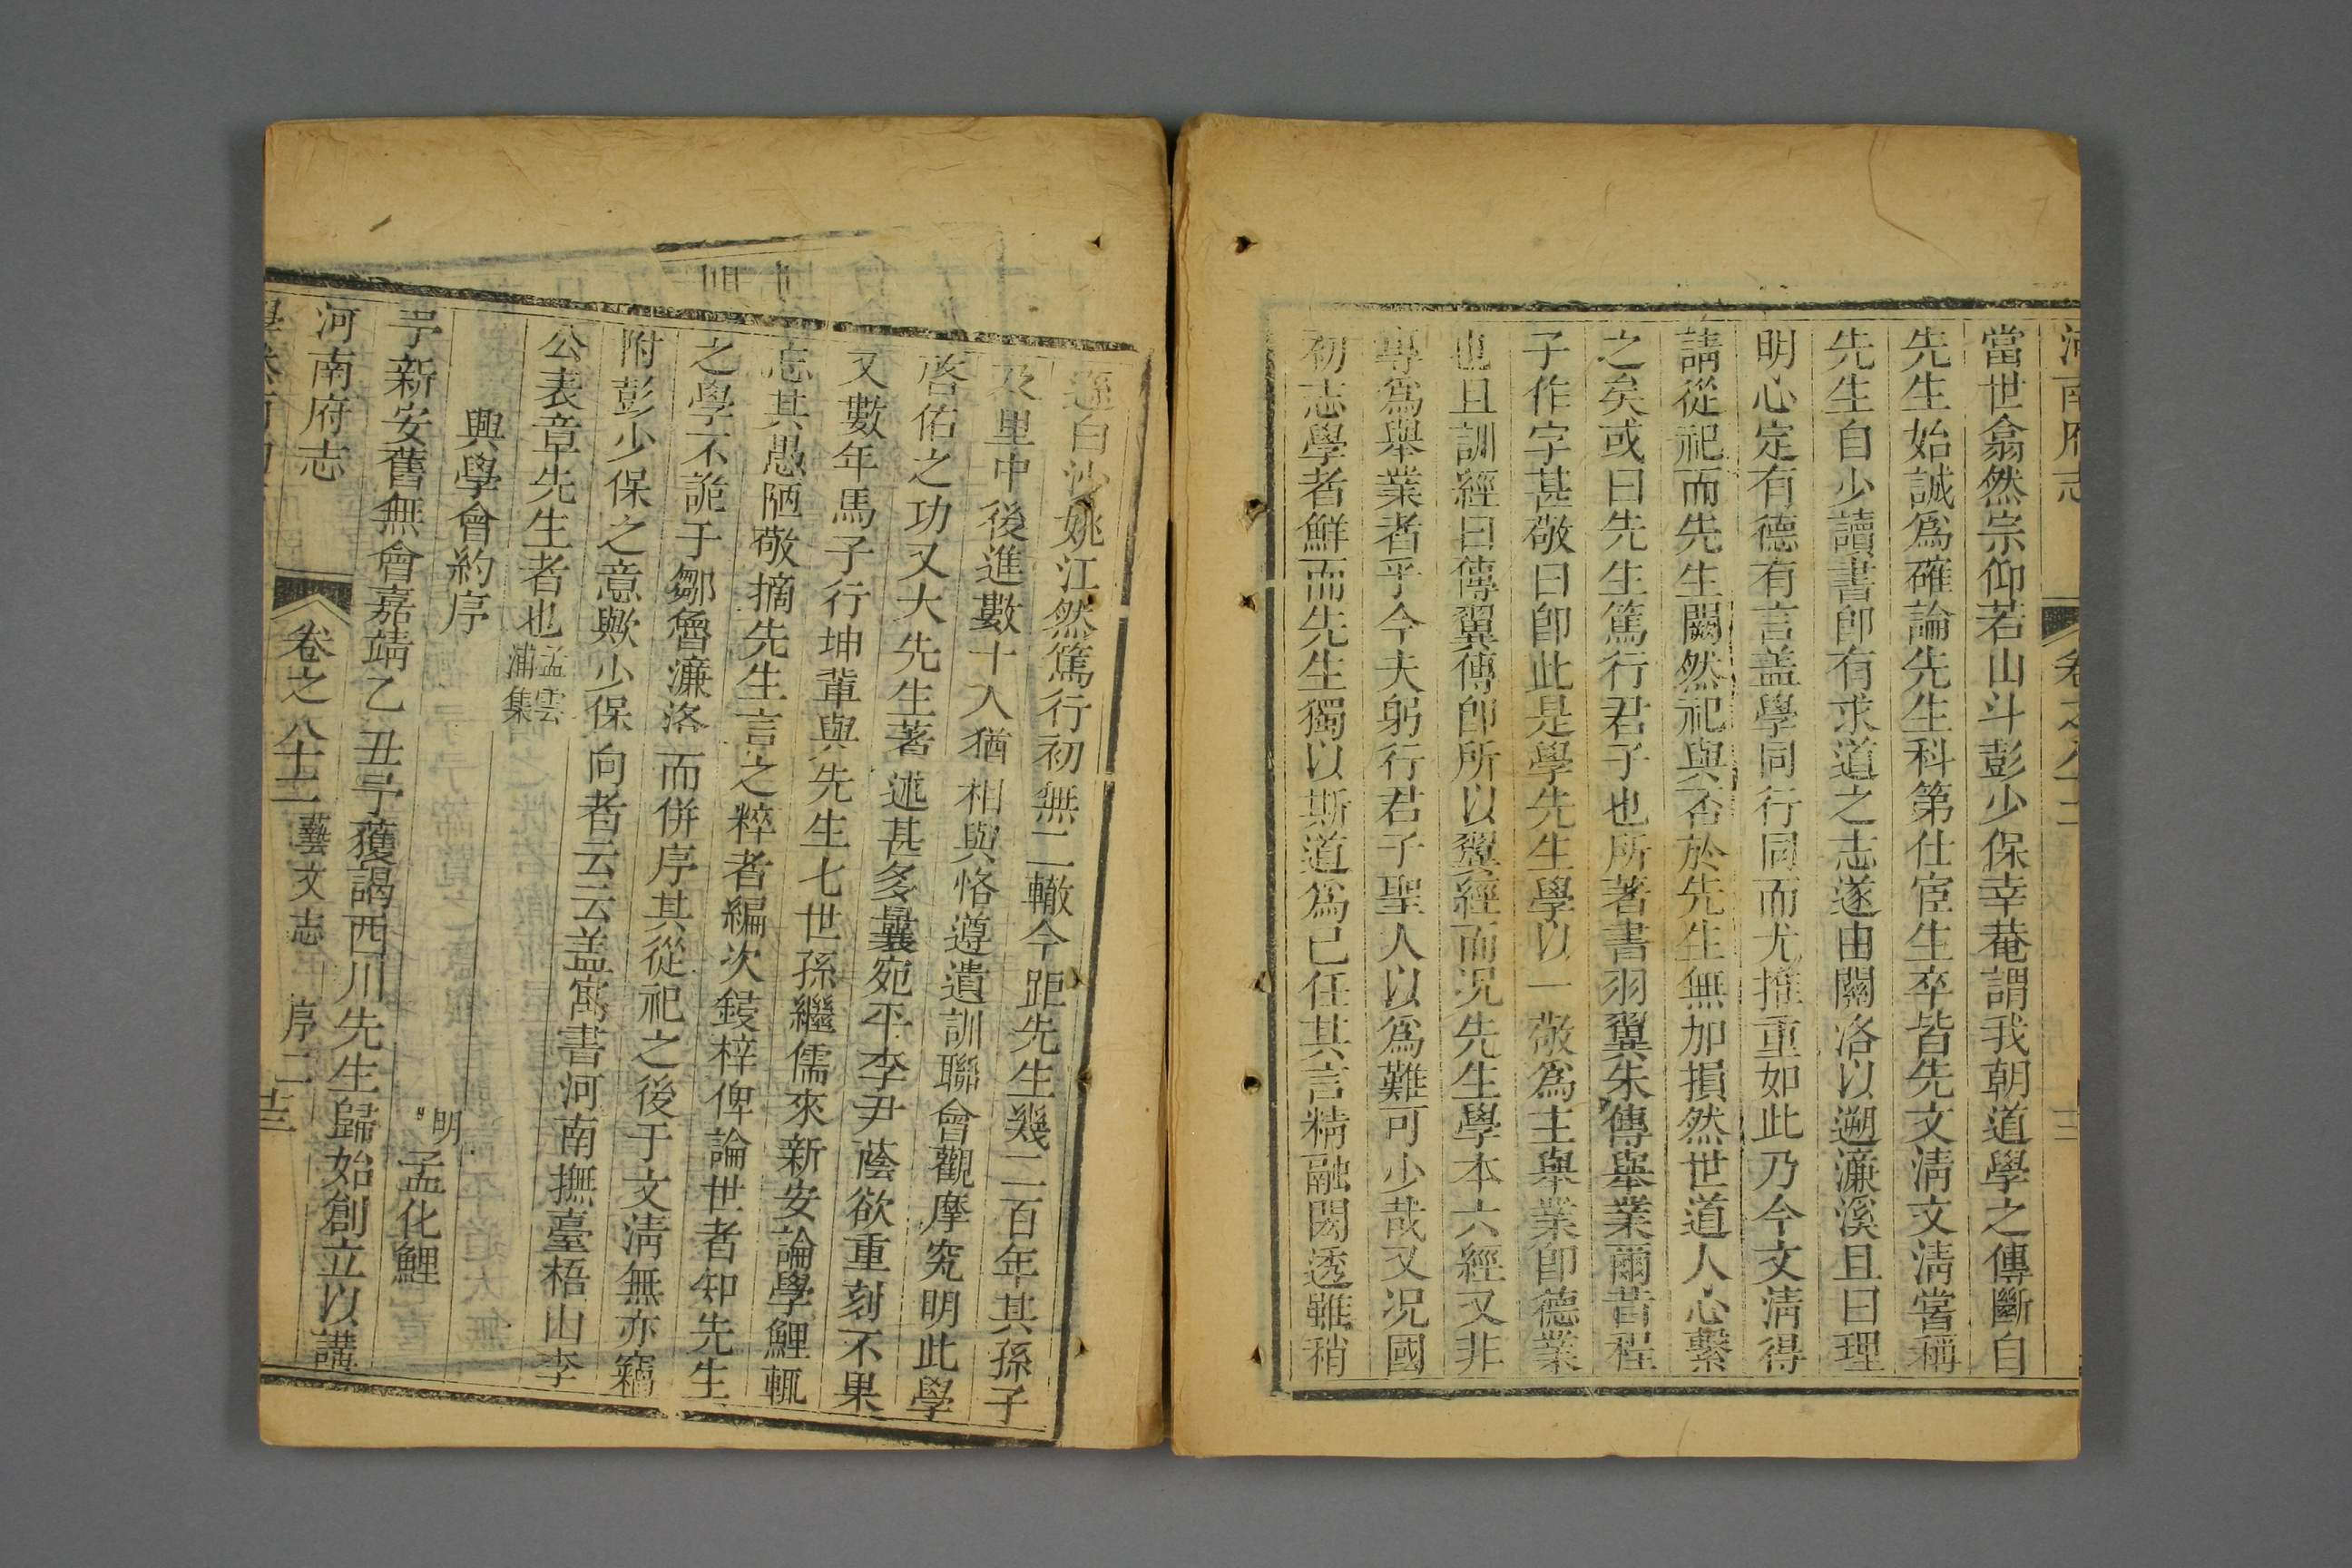 河南府志 卷之八十二
當世翕然宗仰若山斗彭少保幸菴謂我朝道學之傳斷自
先生始誠爲確論先生科第仕宦生卒皆先文淸文淸嘗稱
先生自少讀書卽有求道之志遂由關洛以遡濂溪且曰理
明心定有德有言盖學同行同而尤推重如此乃今文淸得
請從祀而先生闕然祀與否於先生無加損然世道人心繫
之矣或曰先生篤行君子也所著書羽翼朱傳舉業爾昔程
子作字甚敬曰卽此是學先生學以一敬爲主舉業卽德業
也且訓經曰傳翼傳卽所以翼經而況先生學本六經又非
專爲舉業者乎今夫躬行君子聖人以爲難可少哉又况國
初志學者鮮而先生獨以斯道爲已任其言精融閎透雖稍
遜白沙姚江然篤行初無二轍今距先生幾二百年其孫子
及里中後進數十人猶相與恪遵遺訓聯會觀摩究明此學
啓佑之功又大先生著述甚多曩宛平李尹蔭欲重刻不果
又數年馬子行坤輩與先生七世孫繼儒來新安論學鯉輒
忘其愚陋敬摘先生言之粹者編次鋟梓俾論世者知先生
之學不詭于鄒魯濂洛而併序其從祀之後于文淸無亦竊
附彭少保之意歟少保向者云云盖寓書河南撫臺梧山李
公表章先生者也孟雲浦集
興學會約序
明 孟化鯉
予新安舊無會嘉靖乙丑予獲謁西川先生歸始創立以講
河南府志 卷之八十二 藝文志 序二